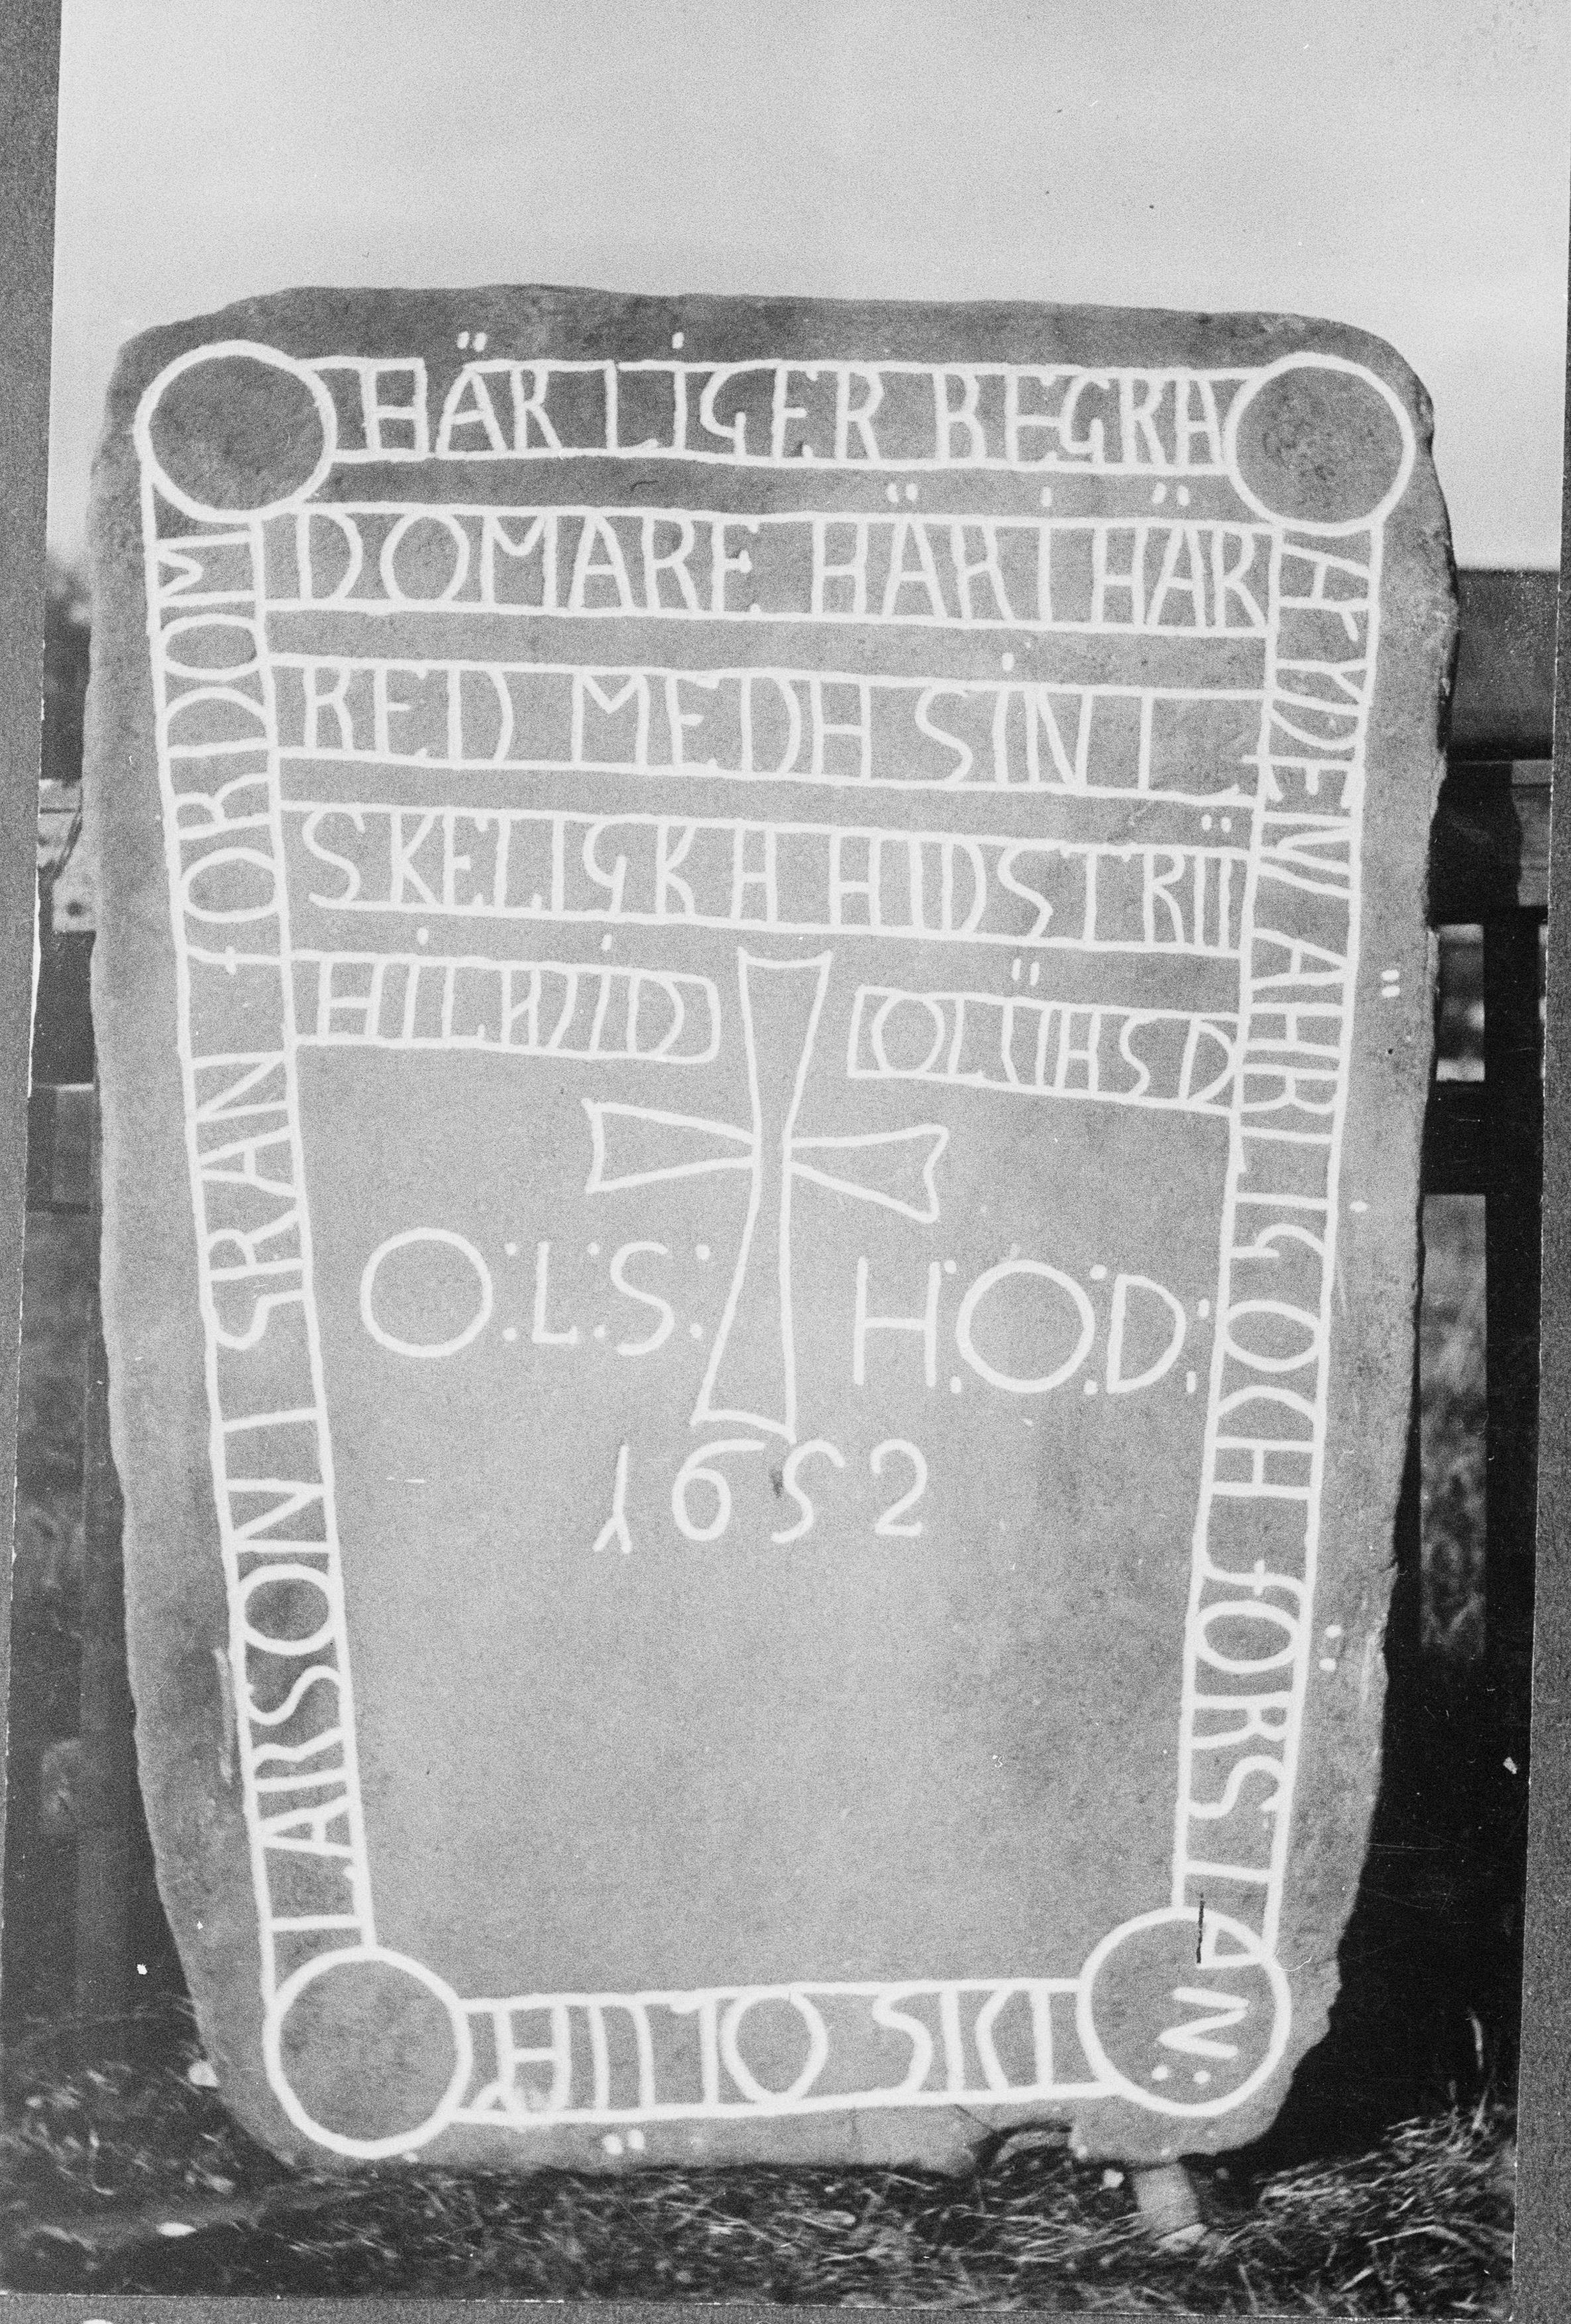 HÄR LIGER BEGRA
AFVDEN ÄHRLIG OCH FÖRSTAN:
DIS OLÜH
LARSON I SRAN FORDOM
DOMARE HÄR I HÄR
RED MEDH SIN L
SKELIGKA HIDSTRÜ
OLÜHSD
O:L:S: H:O:D:
1652